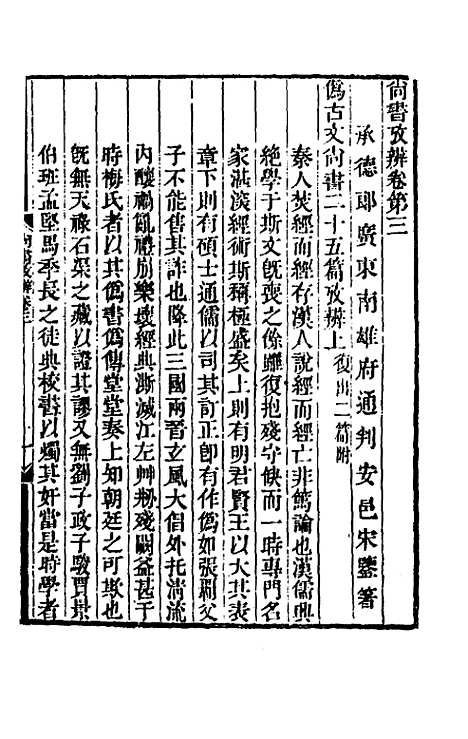 尚書攷辨卷第三
承德郎廣東南雄府通判安邑宋鑒著
僞古文尚書二十五篇攷辨上復出二篇附
秦人焚經而經存漢人說經而經亡非篤論也漢儒興
絶學于斯文旣喪之餘雖復抱殘守缺而一時專門名
家湛深經術斯稱極盛矣上則有明君賢王以大其表
章下則有碩士通儒以司其訂正卽有作僞如張霸父
子不能售其詐也降此三國兩晉玄風大倡外托淸流
內釀禍亂禮崩樂壞經典澌滅江左艸刱殘闕益甚于
時梅氏者以其僞書僞傳堂堂奏上知朝廷之可欺也
旣無天祿石渠之藏以證其謬又無劉子政子駿賈景
伯班孟堅馬季長之徒典校書以燭其奸當是時學者